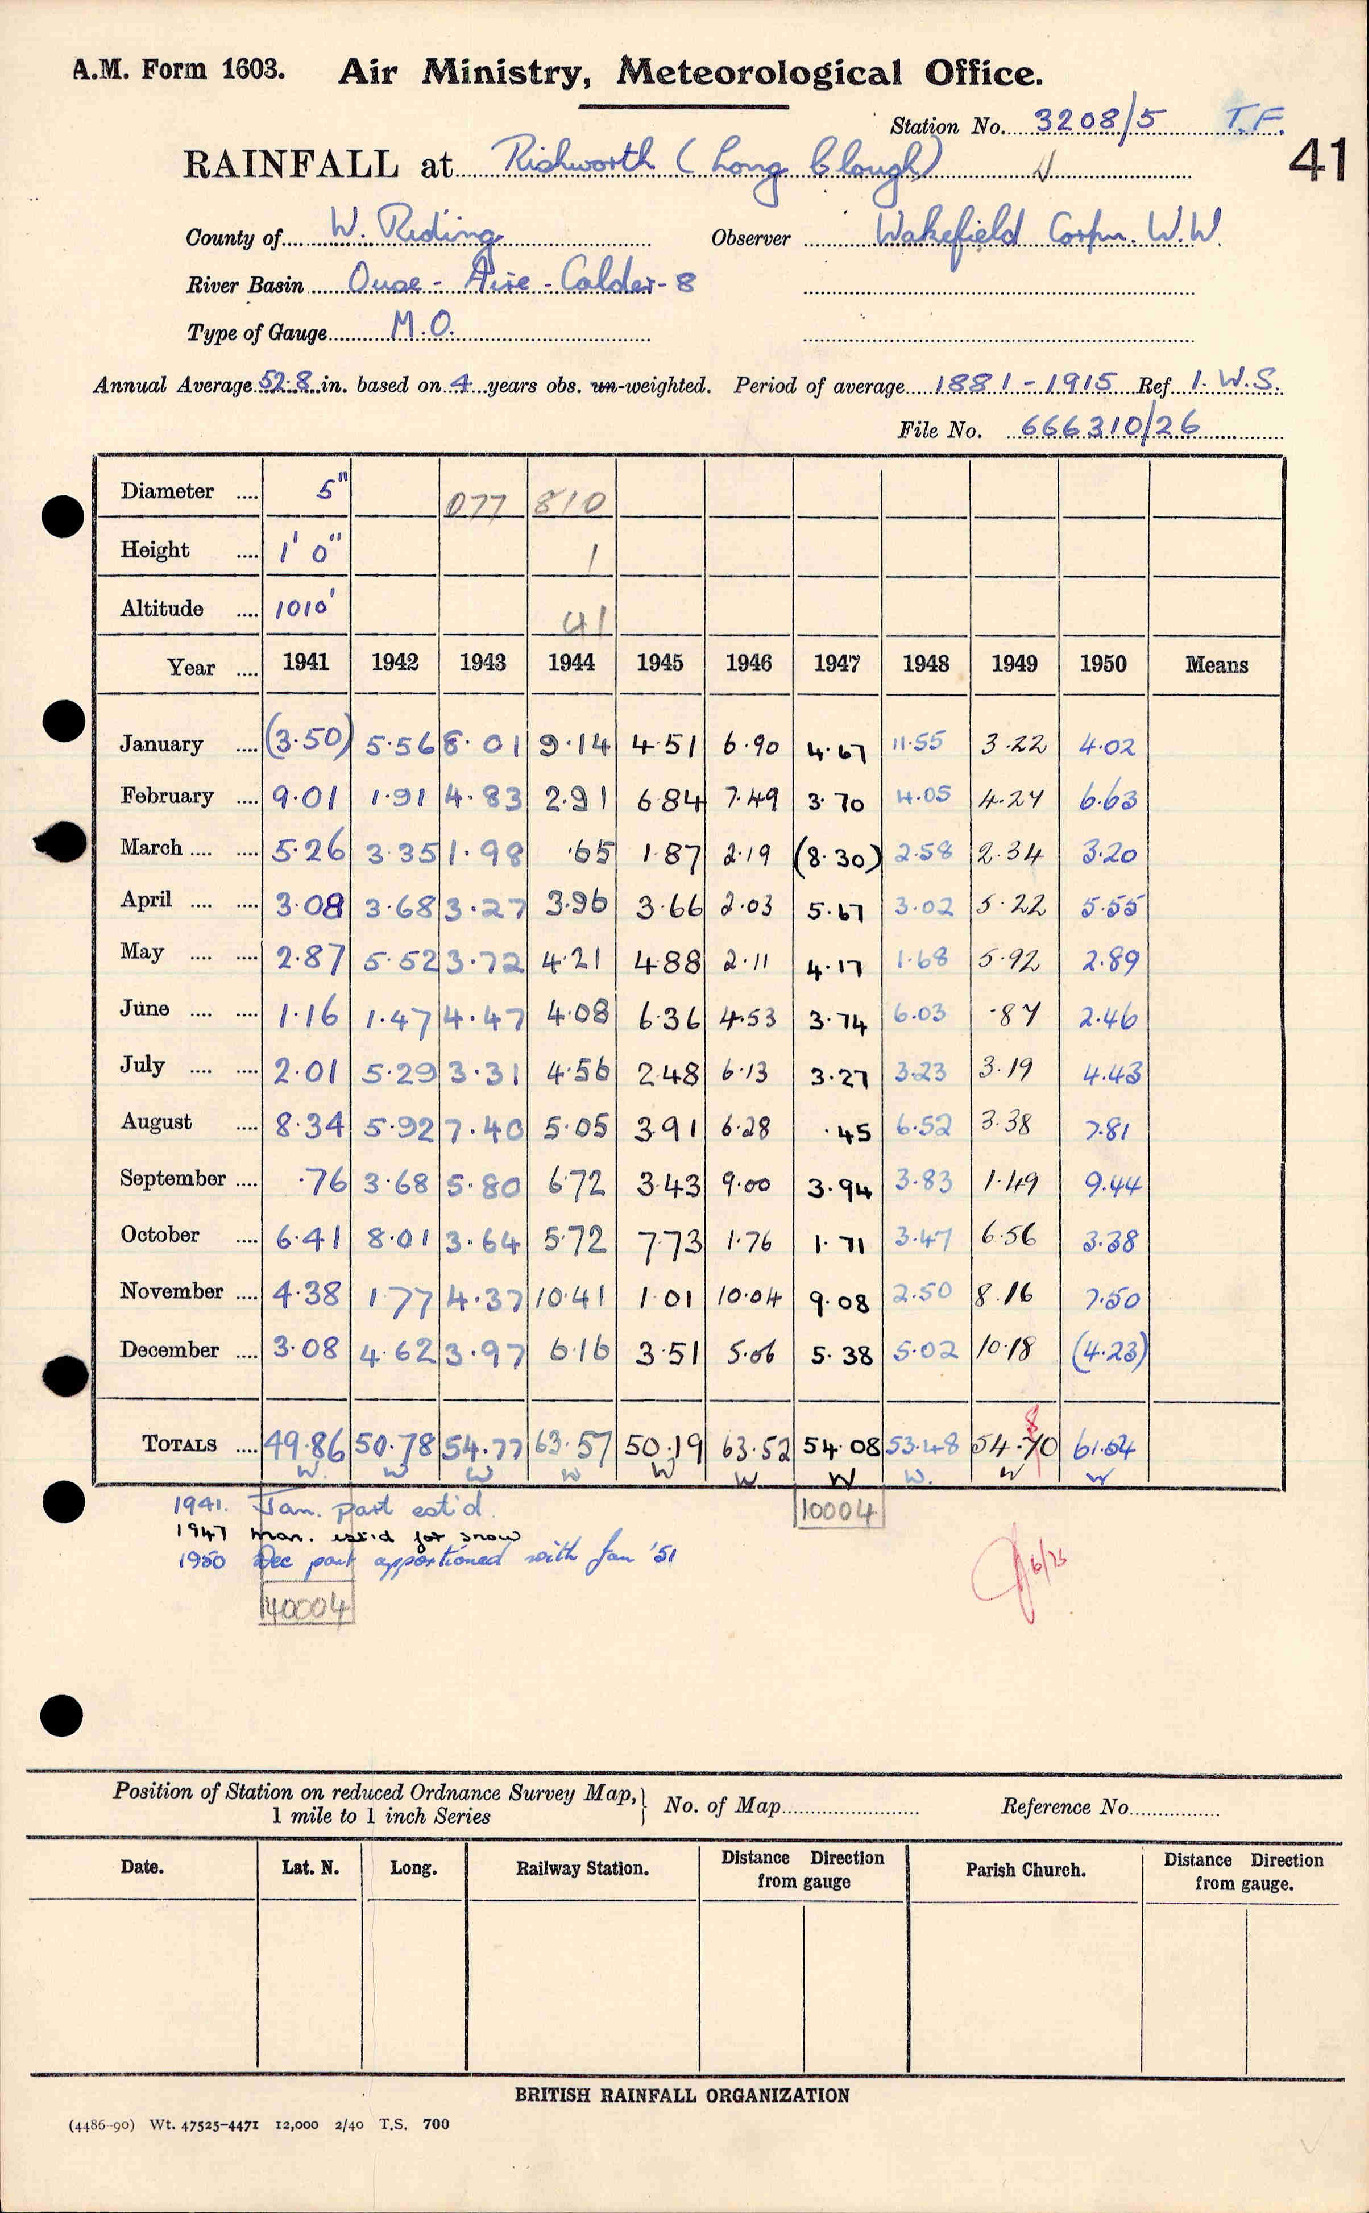 A.M. Form 1603. Air Ministry, Meteorological Office.
Station No. 3208/5 T.F.
41
RAINFALL at Rishworth (Long Clough)
County of W. Riding Observer Wakefield Corpn. W.W.
River Basin Ouse - Aire - Calder - 8
Type of Gauge M.O.
Annual Average 52.8 in. based on 4 years obs. un-weighted. Period of average 1881-1915 Ref I. W.S.
File No. 666310/26
Diameter .... 5" 077 810
Height .... 1' 0" 1
Altitude .... 1010' 41
Year .... 1941 1942 1943 1944 1945 1946 1947 1948 1949 1950 Means
January .... (3.50) 5.56 8.01 9.14 4.51 6.90 4.67 11.55 3.22 4.02
February .... 9.01 1.91 4.83 2.91 6.84 7.49 3.70 4.05 4.27 6.63
March .... .... 5.26 3.35 1.98 .65 1.87 2.19 (8.30) 2.58 2.34 3.20
April .... .... 3.08 3.68 3.27 3.96 3.66 2.03 5.67 3.02 5.22 5.55
May .... .... 2.87 5.52 3.72 4.21 4.88 2.11 4.17 1.68 5.92 2.89
June .... .... 1.16 1.47 4.47 4.08 6.36 4.53 3.74 6.03 .87 2.46
July .... .... 2.01 5.29 3.31 4.56 2.48 6.13 3.27 3.23 3.19 4.43
August .... 8.34 5.92 7.40 5.05 3.91 6.28 .45 6.52 3.38 7.81
September .... .76 3.68 5.80 6.72 3.43 9.00 3.94 3.83 1.49 9.44
October .... 6.41 8.01 3.64 5.72 7.73 1.76 1.71 3.47 6.56 3.38
November .... 4.38 1.77 4.37 10.41 1.01 10.04 9.08 2.50 8.16 7.50
December .... 3.08 4.62 3.97 6.16 3.51 5.06 5.38 5.02 10.18 (4.23)
8
TOTALS .... 49.86 50.78 54.77 63.57 50.19 63.52 54.08 53.48 54.70 61.54
W. W W W W W W W. W W
1941. Jan. part est'd. 10004
1947 Mar. est'd for snow
1950 Dec part apportioned with Jan '51
6/75
40004
Position of Station on reduced Ordnance Survey Map, } No. of Map Reference No.
1 mile to 1 inch Series
Date. Lat. N. Long. Railway Station. Distance Direction from gauge Parish Church. Distance Direction from gauge.
BRITISH RAINFALL ORGANIZATION
(4486-90) Wt. 47525-4471 12,000 2/40 T.S. 700